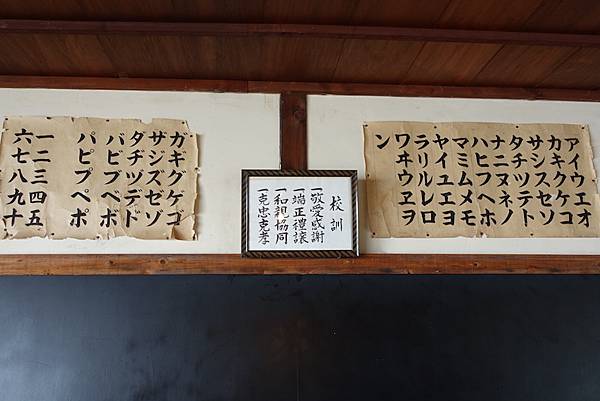 アイウエオ
カキクケコ
サシスセソ
タチツテト
ナニヌネノ
ハヒフヘホ
マミムメモ
ヤイユエヨ
ラリルレロ
ワヰウヱヲ
ン
校訓
一敬愛感謝
一端正禮譲
一和親協同
一克忠克孝
ガギグゲゴ
ザジズゼゾ
ダヂヅデド
バビブベボ
パピプペポ
一二三四五
六七八九十